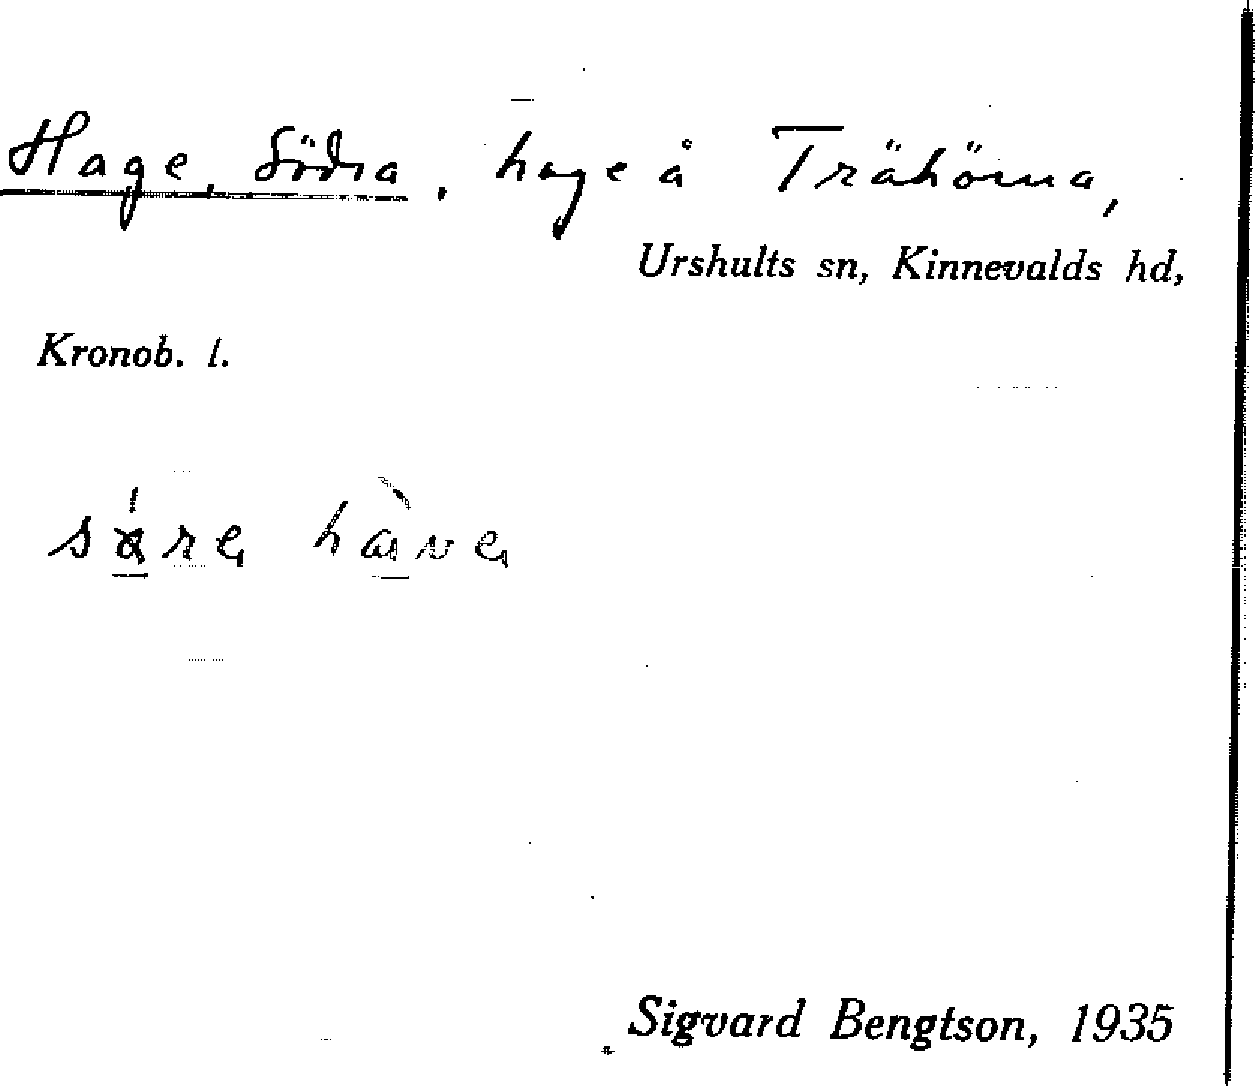 Hage, Södra, hage å Trähörna,
Urshults sn, Kinnevalds hd,
Kronob. l.
Sigvard Bengtson, 1935